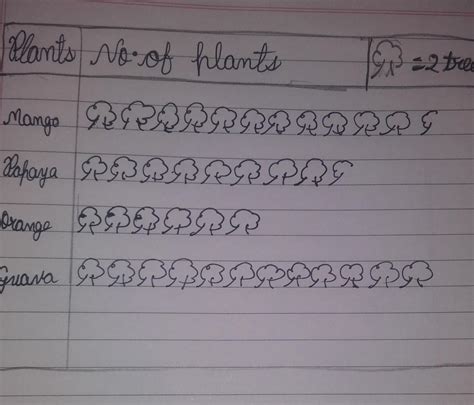 Plants No. of plants = 2 tree
Mango
Papaya
Orange
Guava